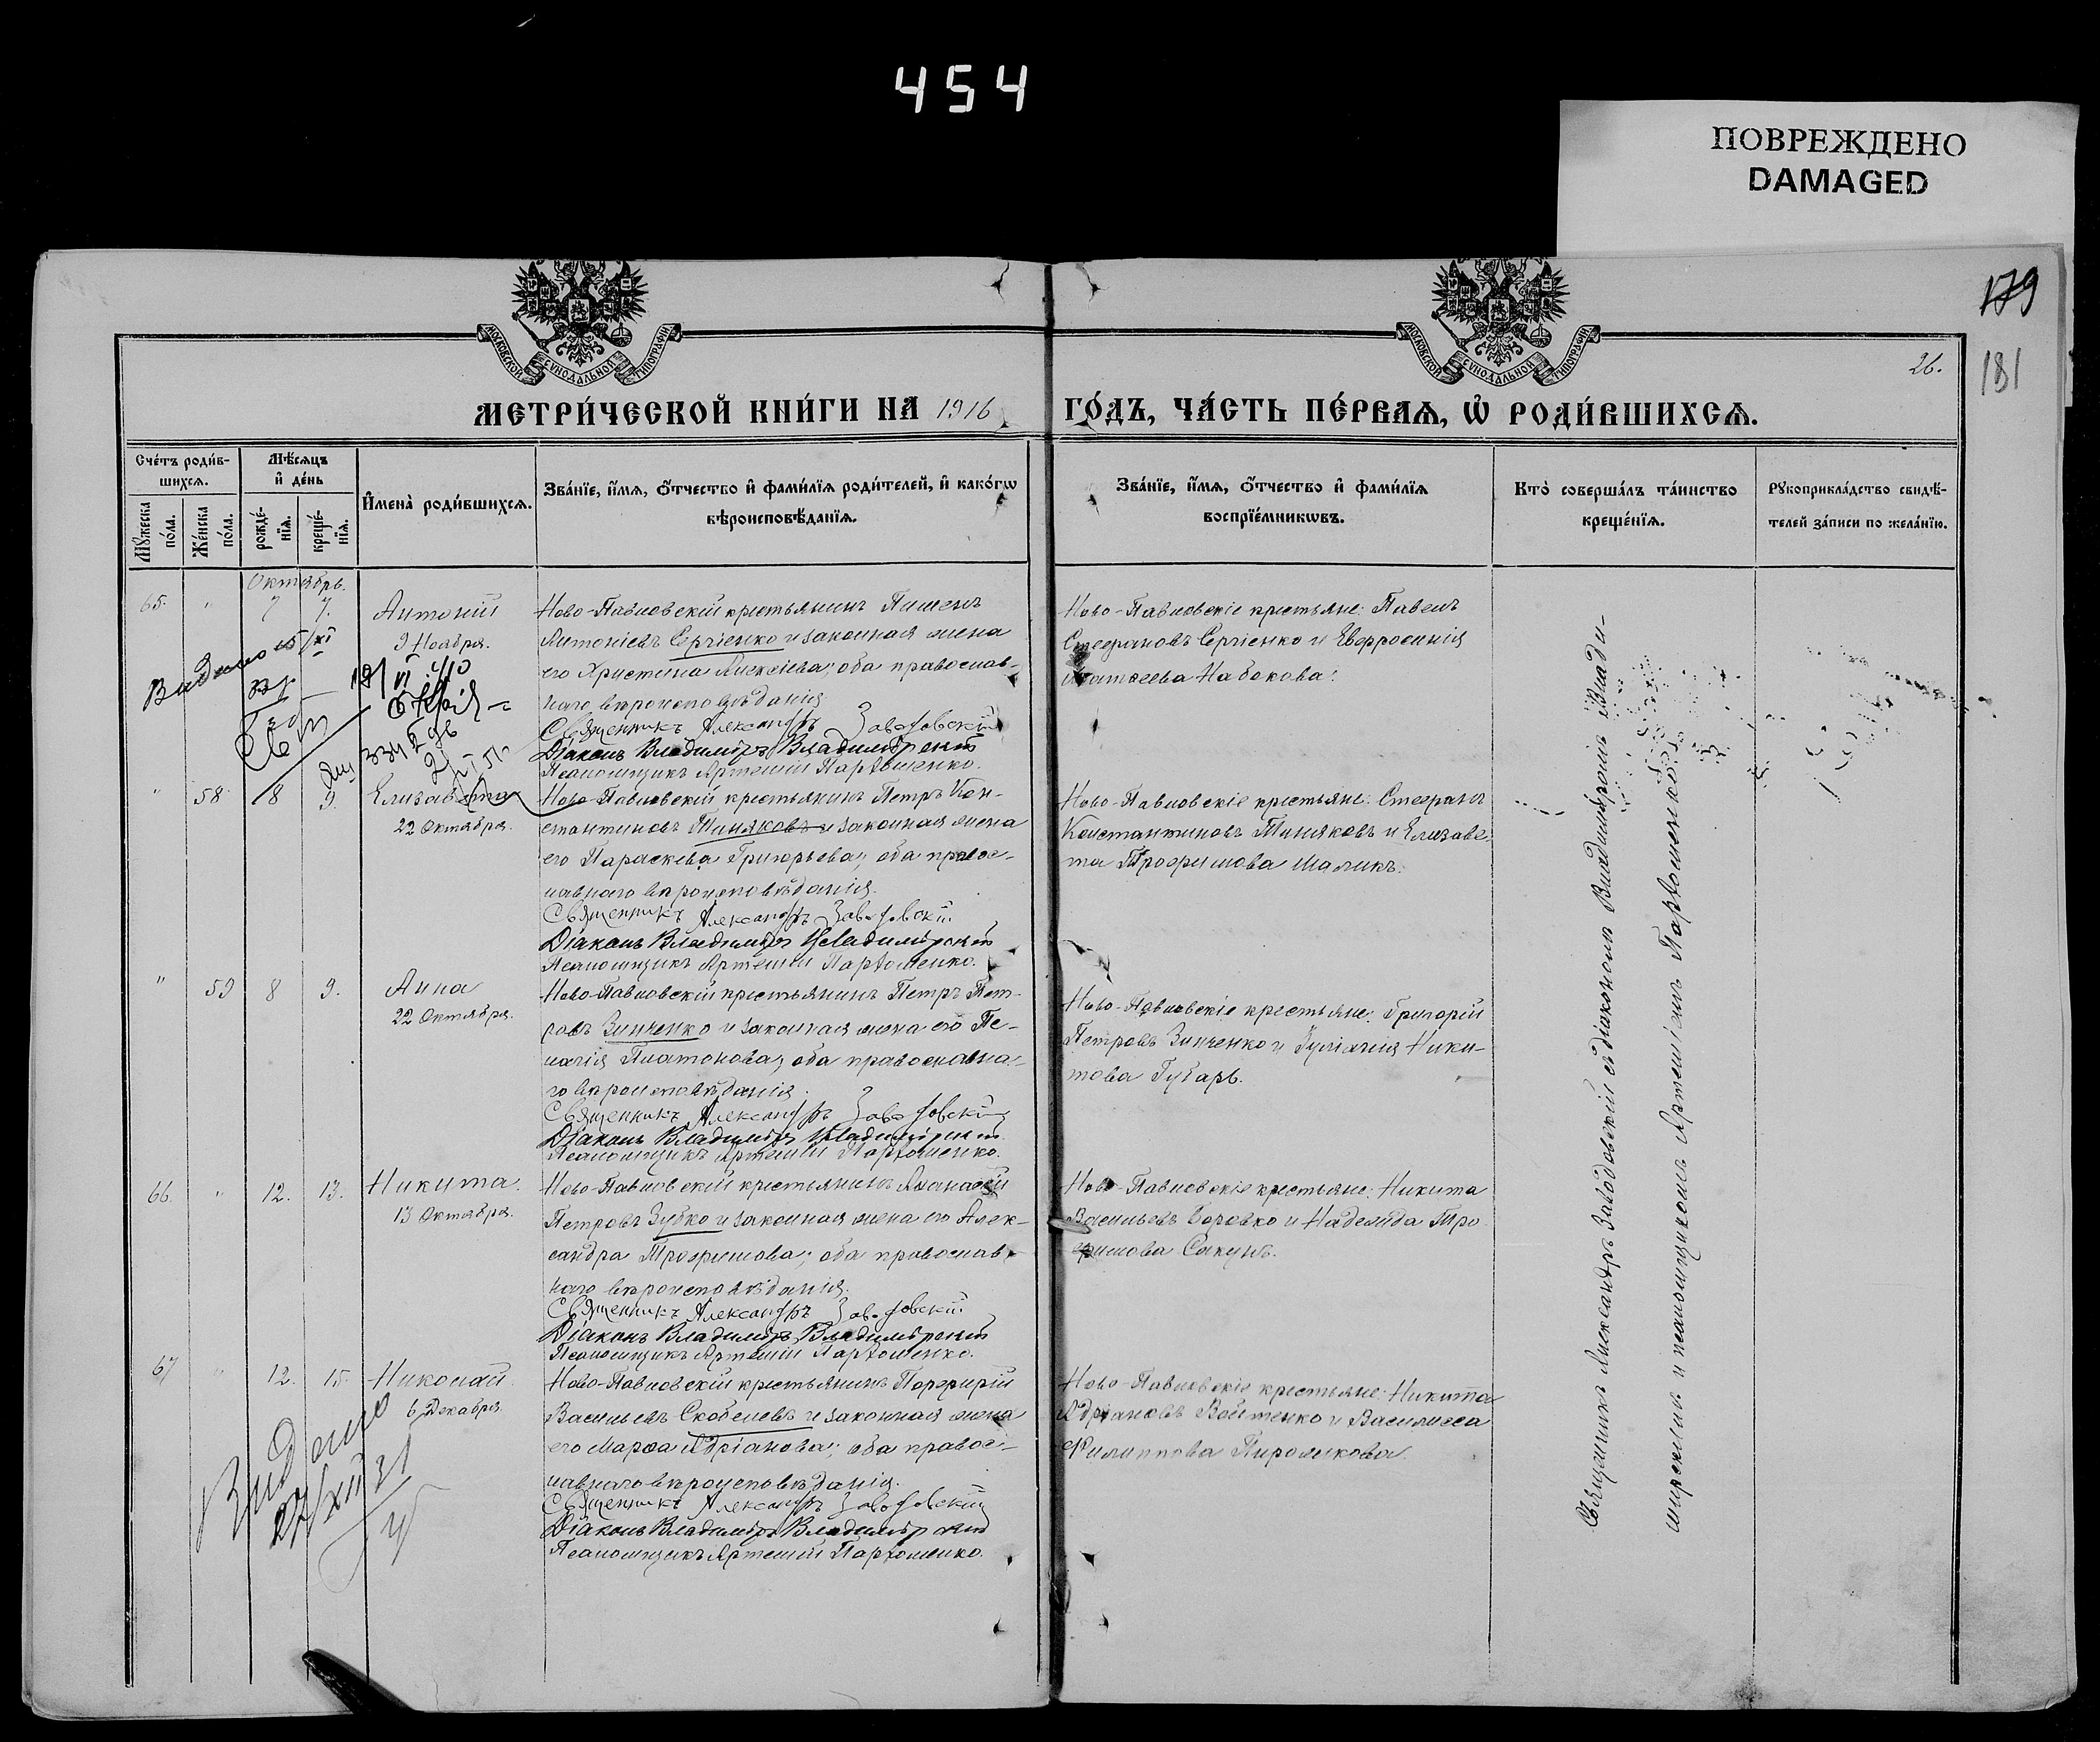 454
ПОВРЕЖДЕНО
DAMAGED
179
181
26.
МОСКОВСКОЙ СѴНОДАЛЬНОЙ ТИПОГРАФІИ
МОСКОВСКОЙ СѴНОДАЛЬНОЙ ТИПОГРАФІИ
МЕТРИ́ЧЕСКОЙ КНИ́ГИ НА 1916 ГО́ДЪ, ЧА́СТЬ ПЕ́РВАѦ, Ѡ РОДИ́ВШИХСѦ.
Сче́тъ роди́в-
шихсѧ.
Мѣ́сѧцъ
и де́нь
Мꙋ́жеска по́ла.
Же́нска по́ла.
рожде́-
нїѧ.
креще́-
нїѧ.
Имена̀ роди́вшихсѧ.
Зва́нїе, и́мѧ, ѻ́тчество и фами́лїѧ роди́телей, и како́гѡ
вѣроисповѣ́данїѧ.
Зва́нїе, и́мѧ, ѻ́тчество и фами́лїѧ
воспрїе́мникѡвъ.
Кто̀ соверша́лъ та́инство
креще́нїѧ.
Рꙋкоприкла́дство свидѣ́-
телей за́писи по жела́нїю.
Октябрь.
65. " 7 7. Антоній
9 Ноября.
Ново-Павловскій крестьянинъ Пименъ
Антоніевъ Сергіенко и законная жена
его Христина Алексіева; оба православ-
наго вѣроисповѣданія
Священникъ Александръ Заводовскій
Діаконъ Владиміръ Владимірскій
Псаломщикъ Артемій Пархоменко.
Ново-Павловскіе крестьяне: Павелъ
Стефановъ Сергіенко и Евфросинія
Матѳеева Набокова.
" 58 8 9. Елизавета
22 Октября.
Ново-Павловскій крестьянинъ Петръ Кон-
стантиновъ Тиняковъ и законная жена
его Параскева Григорьева; оба правос-
лавнаго вѣроисповѣданія.
Священникъ Александръ Заводовскій
Діаконъ Владиміръ Владимірскій
Псаломщикъ Артемій Пархоменко.
Ново-Павловскіе крестьяне: Стефанъ
Константиновъ Тиняковъ и Елизаве-
та Трофимова Шаликъ.
" 59 8 9. Анна
22 Октября.
Ново-Павловскій крестьянинъ Петръ Пет-
ровъ Зинченко и законная жена его Пе-
лагія Платонова; оба православна-
го вѣроисповѣданія.
Священникъ Александръ Заводовскій
Діаконъ Владиміръ Владимірскій
Псаломщикъ Артемій Пархоменко.
Ново-Павловскіе крестьяне: Григорій
Петровъ Зинченко и Іуліанія Ники-
това Губарь.
66. " 12. 13. Никита.
13 Октября.
Ново-Павловскій крестьянинъ Аѳанасій
Петровъ Зубко и законная жена его Алек-
сандра Трофимова; оба православ-
наго вѣроисповѣданія.
Священникъ Александръ Заводовскій
Діаконъ Владиміръ Владимірскій
Псаломщикъ Артемій Пархоменко.
Ново-Павловскіе крестьяне: Никита
Васильевъ Боровко и Надежда Тро
фимова Сакунъ.
67 " 12. 15. Николай.
6 Декабря.
Ново-Павловскій крестьянинъ Порфирій
Васильевъ Скобелевъ и законная жена
его Марѳа Адріанова; оба правос-
лавнаго вѣроисповѣданія.
Священникъ Александръ Заводовскій
Діаконъ Владиміръ Владимірскій
Псаломщикъ Артемій Пархоменко.
Ново-Павловскіе крестьяне: Никита
Адріановъ Войтенко и Василисса
Филиппова Пирожкова.
Священникъ Александръ Заводовскій съ діакономъ Владиміромъ Влади-
мірскимъ и псаломщикомъ Артеміемъ Пархоменко.
Видано
Видано